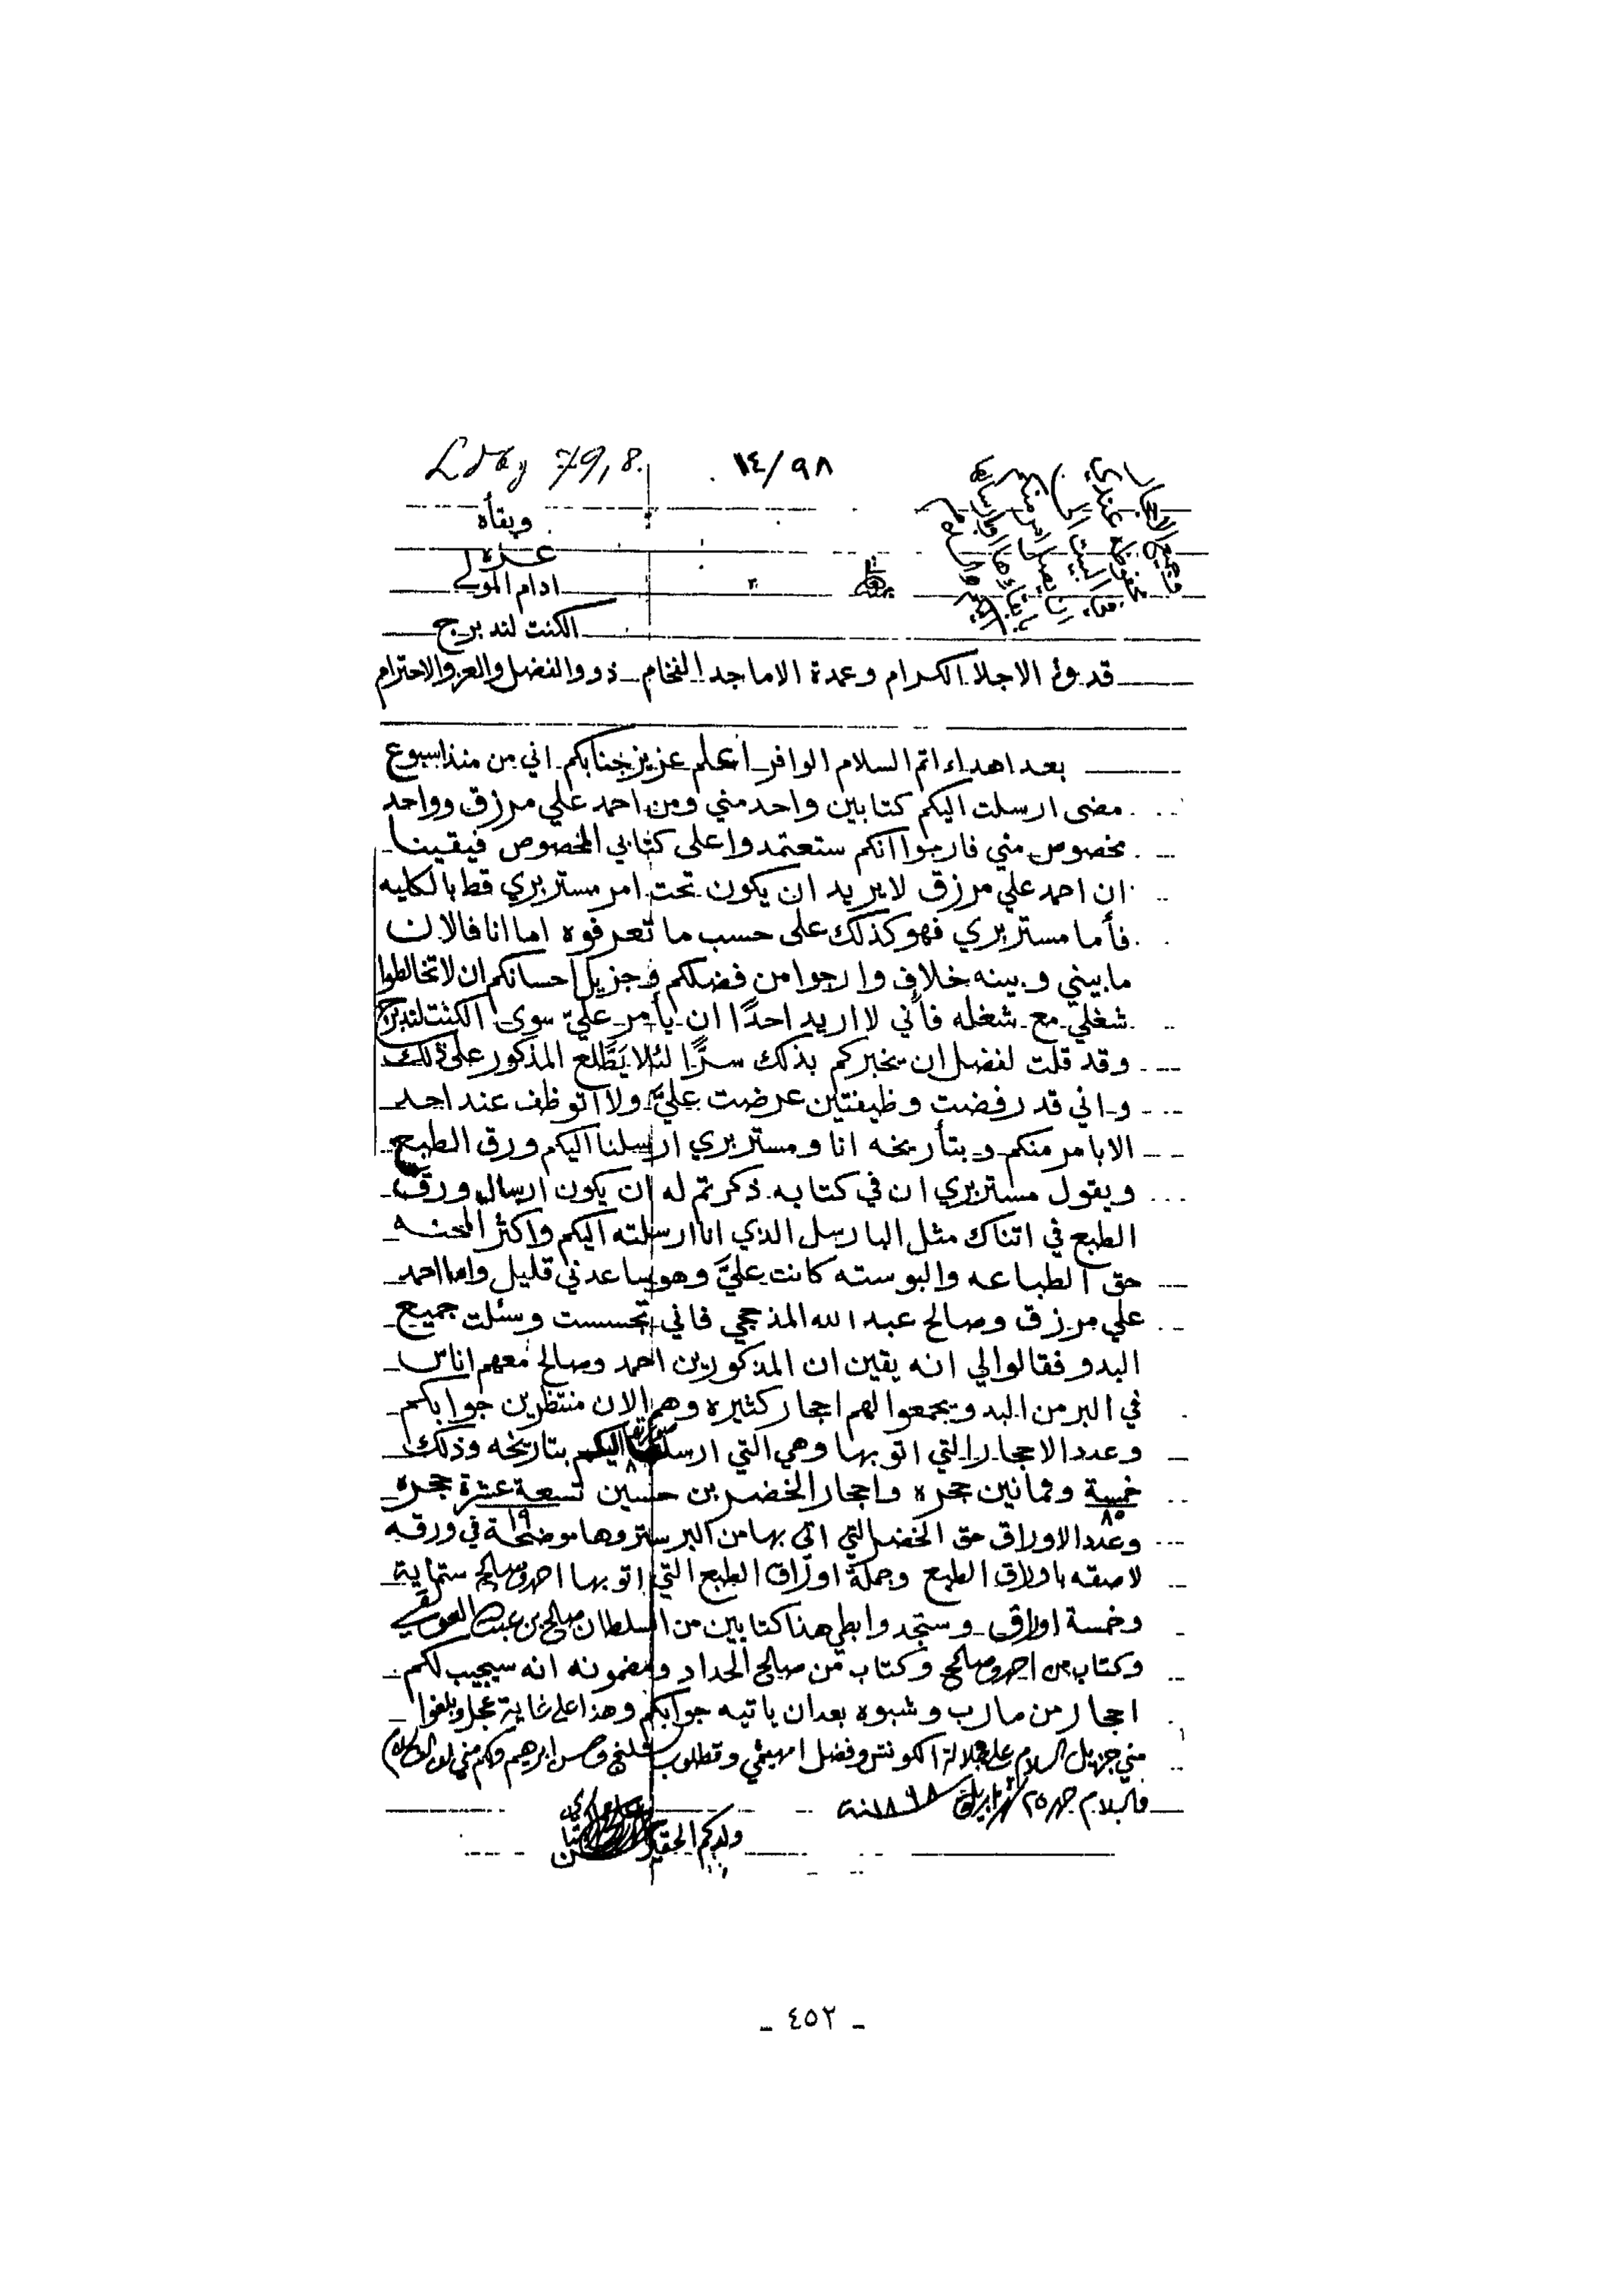 Ldbg 79, 8.
١٤/٩٨
وجميع الاحجار
محفوظه عندي
في البيت الى
ان يصل امر منكم
بابقاءها او ارسالها
اليكم والسلام
وبقأه
عزه
ادام المولى
الكنت لندبرج
قدوة الاجلا الكرام وعمدة الاماجد الفخام ذو والفضل والعز والاحترام
بعد اهداء اتم السلام الوافر اعلم عزيز جنابكم اني من منذ اسبوع
مضى ارسلت اليكم كتابين واحد مني ومن احمد علي مرزق وواحد
مخصوص مني فارجوا انكم ستعتمدوا على كتابي المخصوص فيقينا
ان احمد علي مرزق لا يريد ان يكون تحت امر مستر بري قط بالكليه
فأما مستر بري فهو كذلك على حسب ما تعرفوه اما انا فالان
ما بيني وبينه خلاف وارجوا من فضلكم وجزيل احسانكم ان لا تخالطوا
شغلي مع شغله فأني لا اريد احدًا ان يأمر عليّ سوى الكنت لندبرج
وقد قلت لفضل ان يخبركم بذلك سرًّا لئلا يَطَّلع المذكور على ذلك
واني قد رفضت وظيفتين عرضت عليَّ ولا اتوظف عند احد
الا بامر منكم وبتأريخه انا ومستر بري ارسلنا اليكم ورق الطبع
ويقول مستر بري ان في كتابه ذكرتم له ان يكون ارسال ورق
الطبع في اتناك مثل البارسل الذي انا ارسلته اليكم واكثر المحنه
حق الطباعه والبوسته كانت عليَّ وهو ساعدني قليل واما احمد
علي مرزق وصالح عبد الله المذحجي فاني تحسست وسئلت جميع
البدو فقالوا لي انه يقين ان المذكورين احمد وصالح معهم اناس
في البر من البدو يجمعوا لهم احجار كثيره وهم الان منتظرين جوابكم
وعدد الاحجار التي اتو بها وهي التي ارسلت اليكم بتاريخه وذلك
خمسة وثمانين حجره واحجار الخضر بن حسين تسعة عشرة حجره
٨٥ ١٩
وعدد الاوراق حق الخضر التي اتى بها من البر ستروها موضحة في ورقه
لاصقه باوراق الطبع وجملة اوراق الطبع التي اتو بها احمد وصالح ستماية
وخمسة اوراق وستجدوا بطي هذا كتابين من السلطان صالح بن عبدالله العولقي
وكتاب من احمد وصالح وكتاب من صالح الحداد ومضمونه انه سيجيب لكم
احجار من مارب وشبوه بعد ان ياتيه جوابكم وهذا على غاية عجل وبلغوا
مني جزيل السلام على جلالة الكونتس وفضل امهيثمي وقطلوب فلنفي وحسن ابرهيم ولكم مني
والسلام حرر ٢٥ شهر ابريل ١٨٩٨ سنة
ولدكم الحقير
ـ ٤٥٢ ـ